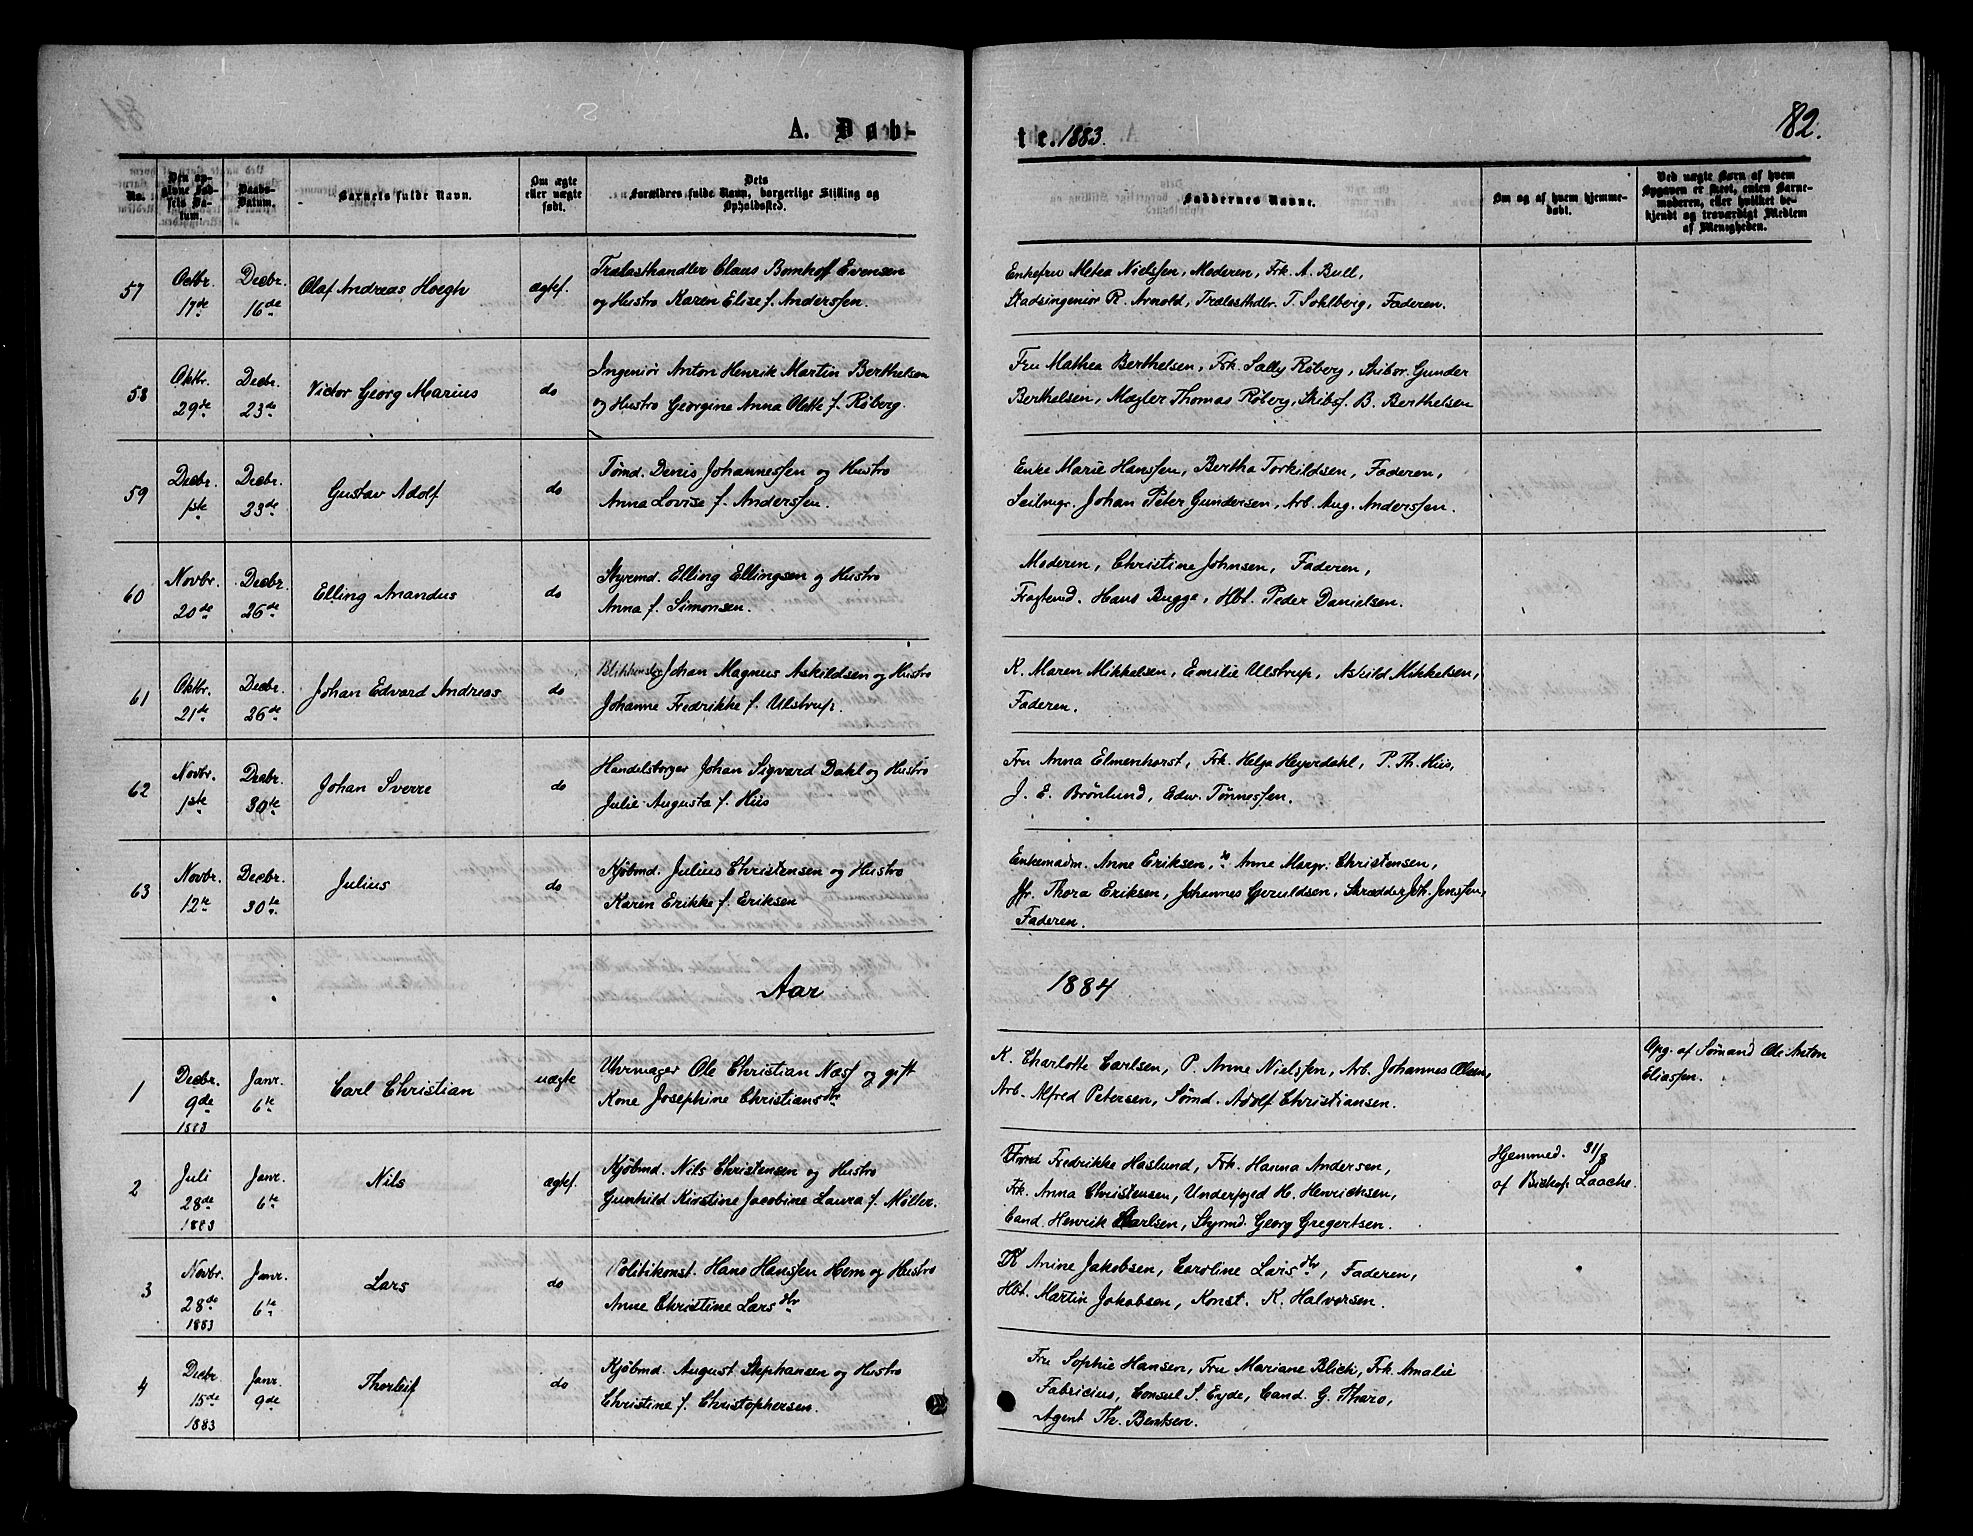 A. Døb-
te. 1883.
82.
No.
Den opgivne Fødsels Datum.
Daabs-Datum.
Barnets fulde Navn.
Om ægte eller uægte født.
Dets Forældres fulde Navn, borgerlige Stilling og Opholdssted.
Faddernes Navne.
Om og af hvem hjemmedøbt.
Ved uægte Børn af hvem Opgaven er skeet, enten Barnemoderen, eller hvilket bekjendt og troværdigt Medlem af Menigheden.
57
Octbr. 17de
Decbr. 16de
Olaf Andreas Hoegh
ægtef.
Trælasthandler Claus Bomhoff Evensen
og Hustro Karen Elise f. Anderssen.
Enkefru Metea Nielssen, Moderen, Frk. A. Bull,
Stadsingeniør R. Arnold, Trælasthdlr. T. Sohlberg, Faderen.
58
Oktbr. 29de
Decbr. 23de
Victor Georg Marius
do
Ingeniør Anton Henrik Martin Berthelsen
og Hustro Georgine Anna Olette f. Røberg.
Fru Mathea Berthelsen, Frk. Sally Røberg, Skibsr. Gunder
Berthelsen, Mægler Thomas Røberg, Skibsf. B. Berthelsen
59
Decbr. 1ste
Decbr. 23de
Gustav Adolf
do
Tømd. Denis Johannessen og Hustro
Anna Lovise f. Anderssen.
Enke Marie Hanssen, Bertha Torkildsen, Faderen,
Seilmgr. Johan Peter Gundersen, Arb. Aug. Anderssen.
60
Novbr. 20de
Decbr. 26de
Elling Anandus
do
Styrmd. Elling Ellingsen og Hustro
Anna f. Simonsen.
Moderen, Christine Johnsen, Faderen,
Fragtemd. Hans Bugge, Hbt. Peder Danielsen.
61
Oktbr. 21de
Decbr. 26de
Johan Edvard Andreas
do
Blikkenslgr Johan Magnus Askildsen og Hustro
Johanne Fredrikke f. Ulstrup.
K. Maren Mikkelsen, Emilie Ulstrup, Askild Mikkelsen,
Faderen.
62
Novbr. 1ste
Decbr. 30te
Johan Sverre
do
Handelsborger Johan Sigvard Dahl og Hustro
Julie Augusta f. Hiis
Fru Anna Elmenhorst, Frk. Helga Heyerdahl, P. Th. Hiis,
J. E. Brønlund, Edw. Tønnessen.
63
Novbr. 12te
Decbr. 30te
Julius
do
Kjøbmd. Julius Christensen og Hustro
Karen Erikke f. Eriksen
Enkemadm. Anne Eriksen, do Anne Margr. Christensen,
Jfr. Thora Eriksen, Johannes Geruldsen, Skrædder Joh. Jenssen,
Faderen.
Aar
1884
1
Decbr. 9de 1883
Janr. 6te
Carl Christian
uægte
Uhrmager Ole Christian Næss og gift
Kone Josephine Christiansdtr
K. Charlotte Carlsen, P. Anne Nielssen, Arb. Johannes Olsen,
Arb. Alfred Petersen, Sømd. Adolf Christiansen.
Opg. af Sømand Ole Anton
Eliassen.
2
Juli 28de 1883
Janr. 6te
Nils
ægtef.
Kjøbmd. Nils Christensen og Hustro
Gunhild Kirstine Jacobine Laura f. Møller.
Fredrikke Haslund, Frk. Hanna Andersen,
Frk. Anna Christensen, Underfoged H. Henrichsen,
Cand. Henrik Carlsen, Styrmd. Georg Gregertsen.
Hjemmed. 31/8
af Biskop Laache.
3
Novbr. 28de 1883
Janr. 6te
Lars
do
Politikonst. Hans Hanssen Hem og Hustro
Anne Christine Larsdtr
K Anine Jakobsen, Caroline Larsdtr, Faderen,
Hbt. Martin Jakobsen, Konst. K. Halvorsen.
4
Decbr 15de 1883
Janr. 9de
Thorleif
do
Kjøbmd. August Stephansen og Hustro
Christine f. Christophersen.
Fru Sophie Hansen, Fru Mariane Blich, Frk. Amalie
Fabricius, Consul S. Eyde, Cand. G. Tharo,
Agent Th. Bentsen.